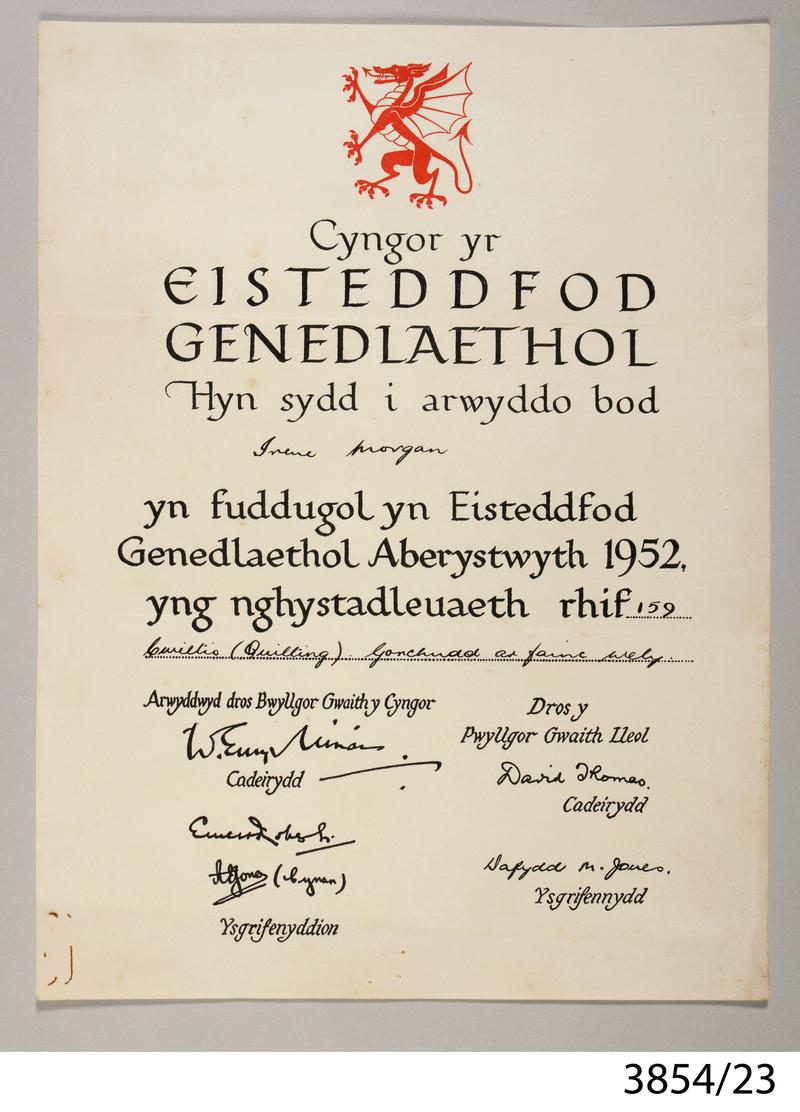 Cyngor yr
EISTEDDFOD
GENEDLAETHOL
Hyn sydd i arwyddo bod
Irene Morgan
yn fuddugol yn Eisteddfod
Genedlaethol Aberystwyth 1952,
yng nghystadleuaeth rhif 159
Cwiltio (Quilting). Gorchudd ar fainc wely.
Arwyddwyd dros Bwyllgor Gwaith y Cyngor
W. Emyr
Cadeirydd
Ysgrifenyddion
(Cynan)
Dros y
Pwyllgor Gwaith Lleol
David Thomas.
Cadeirydd
Dafydd M. Jones.
Ysgrifennydd
3854/23